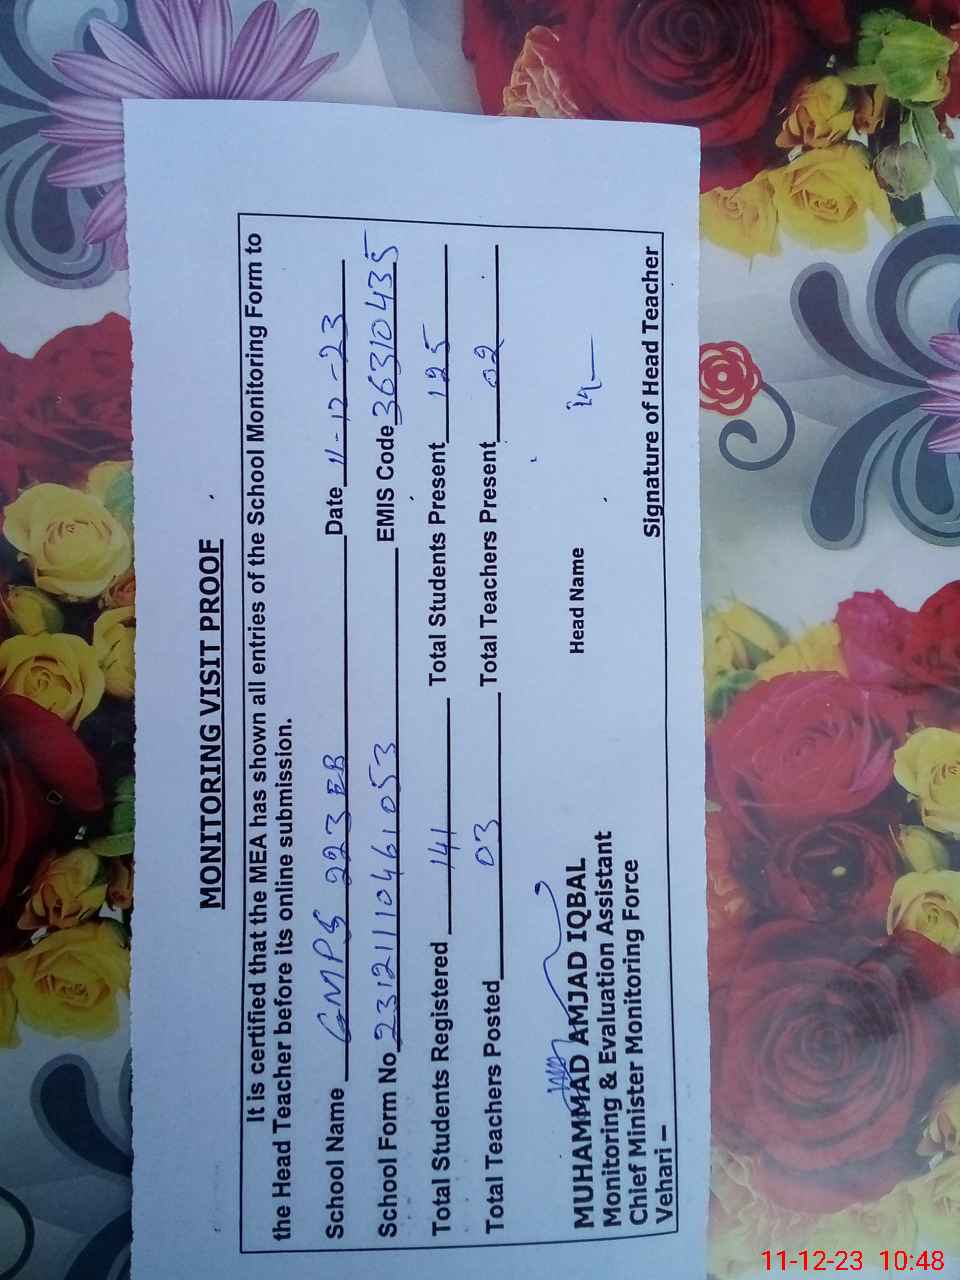 MONITORING VISIT PROOF
It is certified that the MEA has shown all entries of the School Monitoring Form to
the Head Teacher before its online submission.
School Name GMPS 223 EB Date 11-12-23
School Form No 23121110461053 EMIS Code 36310435
Total Students Registered 141 Total Students Present 125
Total Teachers Posted 03 Total Teachers Present 02
MUHAMMAD AMJAD IQBAL Head Name
Monitoring & Evaluation Assistant
Chief Minister Monitoring Force
Vehari – Signature of Head Teacher
11-12-23 10:48